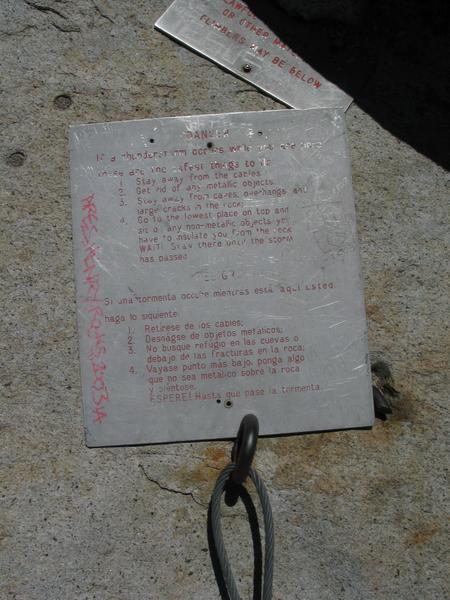 OR OTHER
CLIMBERS MAY BE BELOW
DANGER
If a thunderstorm occurs while you are here
these are the safest things to do
1. Stay away from the cables
2. Get rid of any metallic objects
3. Stay away from caves, overhangs and
large cracks in the rock
4. Go to the lowest place on top and
sit on any non-metallic objects you
have to insulate you from the rock
WAIT! Stay there until the storm
has passed
PELIGRO
Si una tormenta occure mientras está aquí usted,
haga lo siguiente
1. Retírese de los cables;
2. Desnágse de objetos metálicos;
3. No busque refugio en las cuevas o
debajo de las fracturas en la roca;
4. Vayase punto más bajo, ponga algo
que no sea metálico sobre la roca
y sientose.
¡ESPERE! Hasta que pase la tormenta.